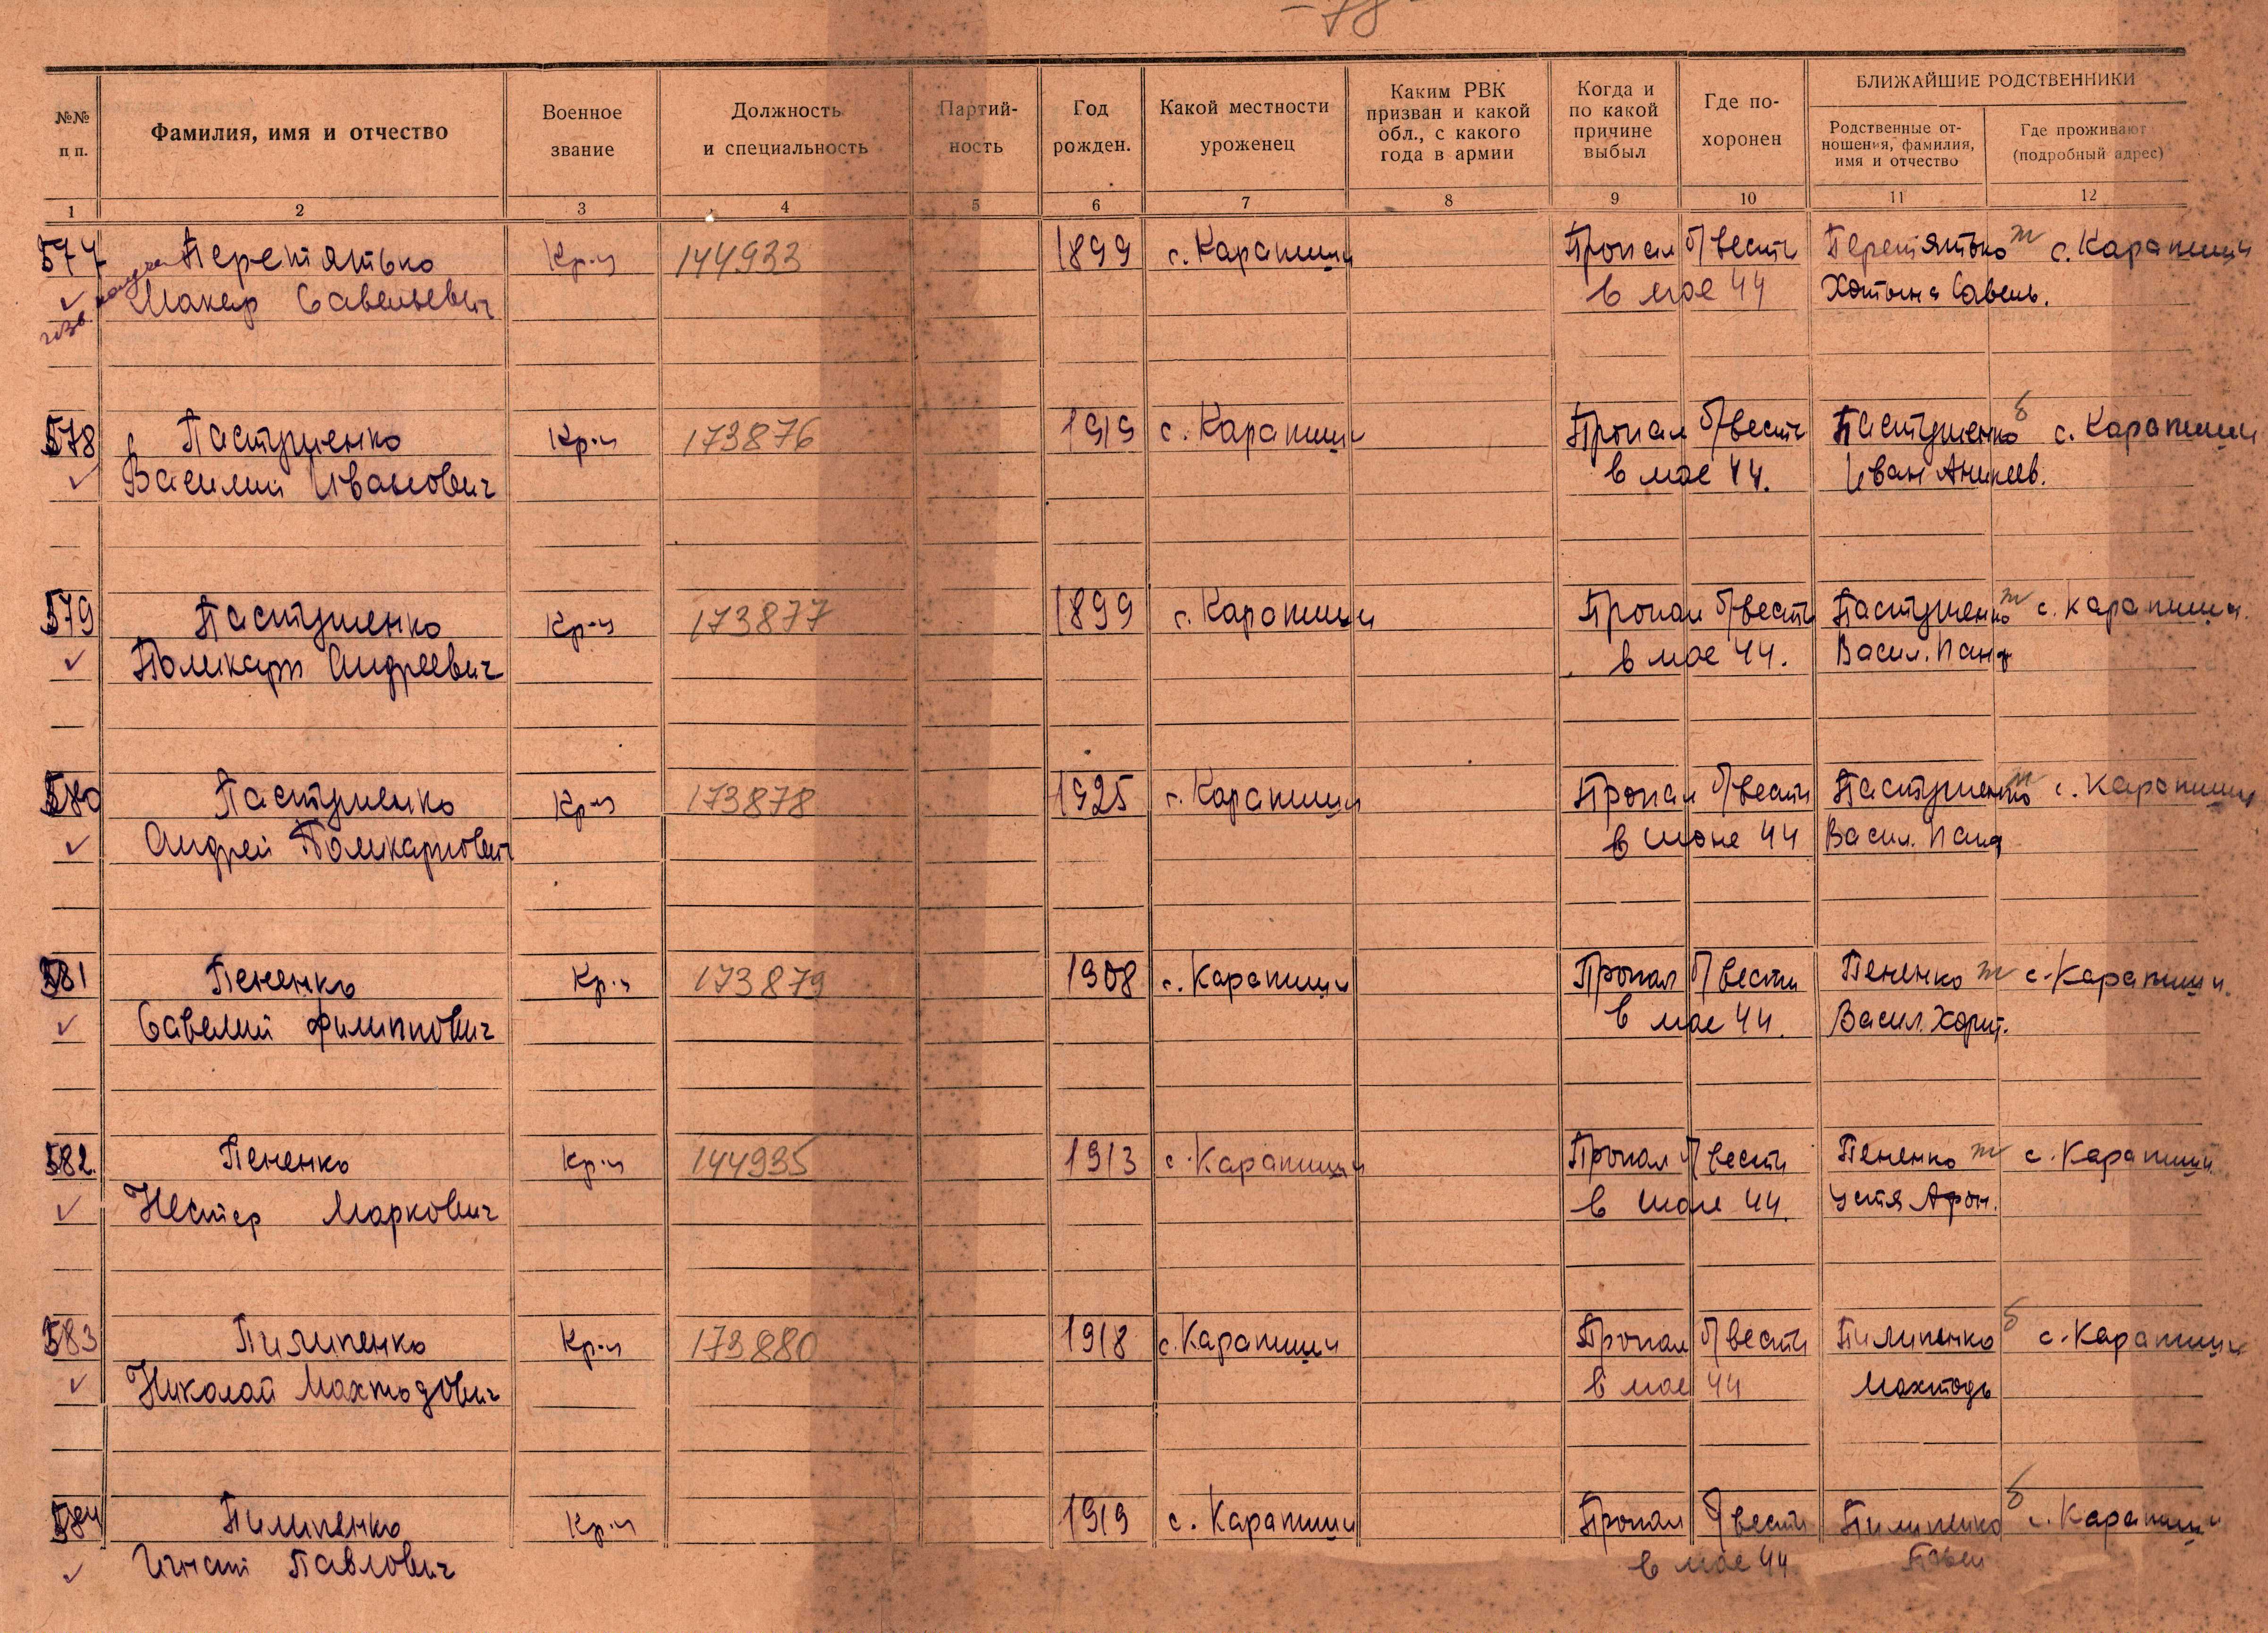 -78-
№№ п п.
Фамилия, имя и отчество
Военное звание
Должность и специальность
Партий-ность
Год рожден.
Какой местности уроженец
Каким РВК призван и какой обл., с какого года в армии
Когда и по какой причине выбыл
Где по-хоронен
БЛИЖАЙШИЕ РОДСТВЕННИКИ
Родственные от-ношения, фамилия, имя и отчество
Где проживают (подробный адрес)
1 2 3 4 5 6 7 8 9 10 11 12
577 Перетятько Кр-ц 144933 1899 с. Карапиши Пропал б/вести Перетятько ж с. Карапиши
Макар Савельевич в мае 44 Савель.
578 Пастушенко Кр-ц 173876 1919 с. Карапиши Пропал б/вести Пастушенко б с. Карапиши
Василий Иванович в мае 44. Иван Аникеев.
579 Пастушенко Кр-ц 173877 1899 с. Карапиши Пропал б/вести Пастушенко ж с. Карапиши.
Поликарп Андреевич в мае 44. Васил. Панф
580 Пастушенко Кр-ц 173878 1925 с. Карапиши Пропал б/вести Пастушенко ж с. Карапиши
Андрей Поликарпович в июне 44 Васил. Панф
581 Пененко Кр-ц 173879 1908 с. Карапиши Пропал б/вести Пененко ж с. Карапиши.
Савелий Филиппович в мае 44. Васил. Харит.
582. Пененко Кр-ц 144935 1913 с. Карапиши Пропал б/вести Пененко ж с. Карапиши
Нестер Маркович в 44. Устя Афон.
583 Пилипенко Кр-ц 173880 1918 с. Карапиши Пропал б/вести Пилипенко б с. Карапиши
Николай Махтодович в мае 44 Махтодь
584 Пилипенко Кр-ц 1919 с. Карапиши Пропал б/вести Пилипенко б с. Карапиши
Игнат Павлович в мае 44